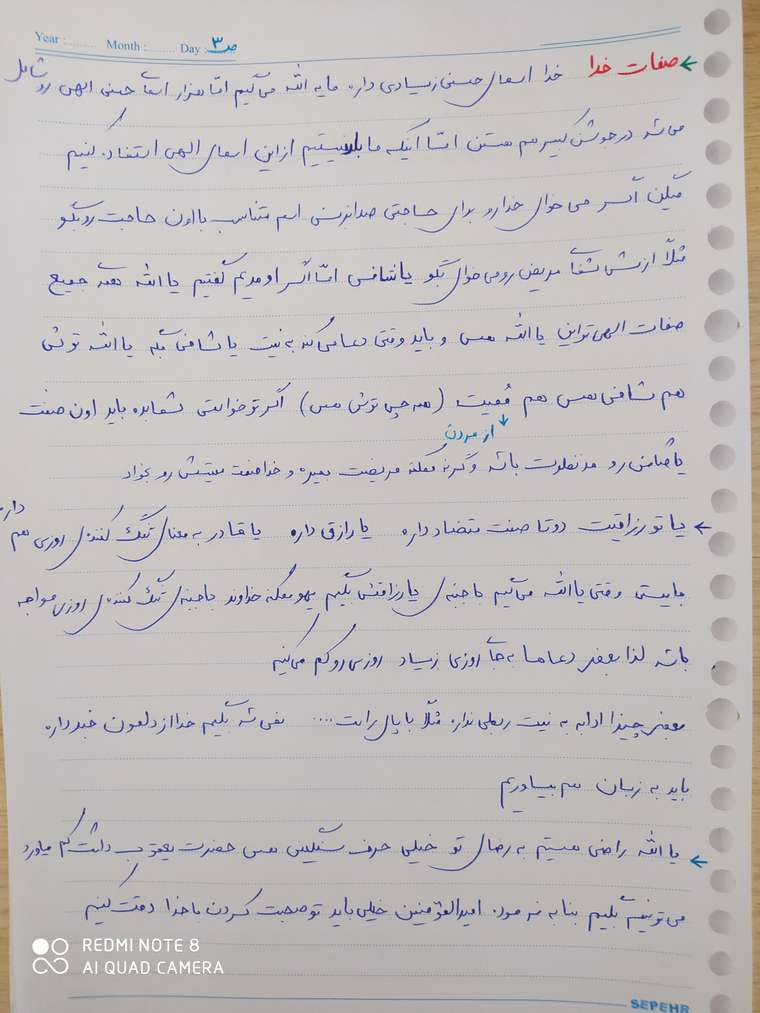 Year :........ Month :........ Day : ص ۳
← صفات خدا خدا اسمای حسنی زیادی داره ما یه الله می‌گیم اما هزار اسماء حسنی الهی رو شامل
می شه در جوشن کبیر هم هستن اما اینکه ما بلد نیستیم از این اسمای الهی استفاده کنیم
میگن اگر می خوای خدا رو برای حاجتی صدا بزنی اسم متناسب با اون حاجت رو بگو
مثلاً ازش شفای مریض رو می خوای بگو یا شافی اما اگر اومدیم گفتیم یا الله همه جمیع
صفات الهی تو این یا الله هس و باید وقتی دعا می کنه به نیت یا شافی بگه یا الله توش
هم شافی هس هم مُمیت (همه چی توش هس) اگر تو خواستی شفا بده باید اون صفت
از مردن
یا رو مد نظرت باشه وگرنه ممکنه مریضت بمیره و خدا صفت ممیتش رو بخواد
← یا تو رزاقیت دو تا صفت متضاد داره یا رازق داره یا قادر به معنای تنگ کننده ی روزی هم داره
بایستی وقتی یا الله می‌گیم با جنبه ی یا رزاقش بگیم یهو ممکنه خداوند با جنبه ی تنگ کننده ی روزی مواجه
باشه لذا بعضی دعاها به جای روزی زیاد روزی رو کم می کنه
بعضی چیزا ادا به نیت ربطی نداره مثلاً با .... نمی شه بگیم خدا از دلمون خبر داره
باید به زبان هم بیاوریم
← یا الله راضی هستیم به رضای تو خیلی حرف سنگین هس حضرت یعقوب داشت کم میاورد
می تونیم بگیم بنا به فرموده امیرالمؤمنین خیلی باید تو صحبت کردن با خدا دقت کنیم
REDMI NOTE 8
AI QUAD CAMERA
SEPEHR